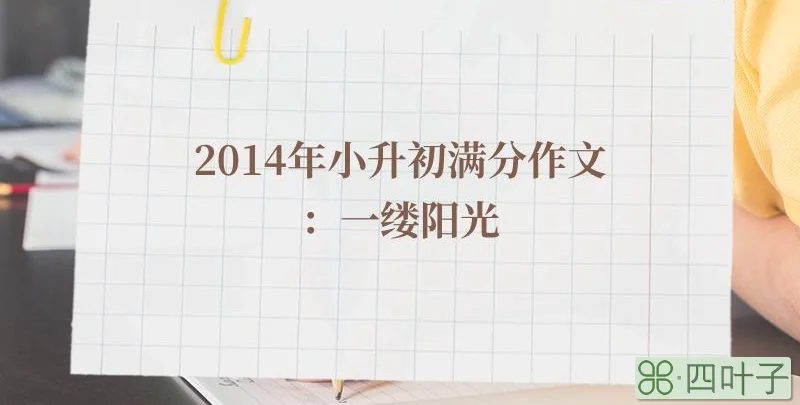 2014年小升初满分作文
：一缕阳光
⌘·四叶子